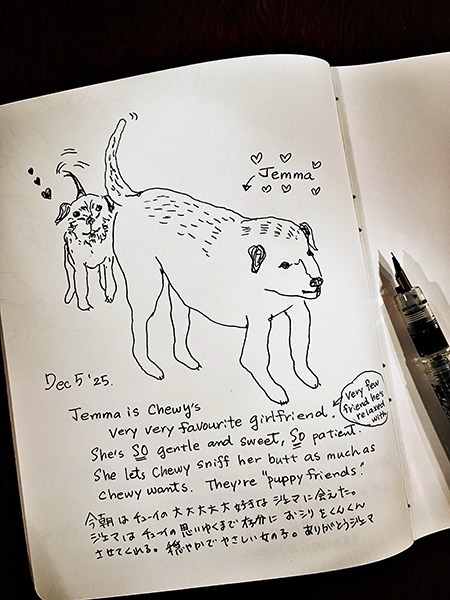 Jemma
Dec 5 '25.
Jemma is Chewy's
very very favourite girlfriend.
very few
friend he's
relaxed
with
She's SO gentle and sweet, SO patient.
She lets Chewy sniff her butt as much as
Chewy wants. They're "puppy friends."
今朝はチューイの大大大大大好きなジェマに会えた。
ジェマはチューイの思いゆくまで存分におシリをくんくん
させてくれる。穏やかでやさしい女の子。ありがとうジェマ